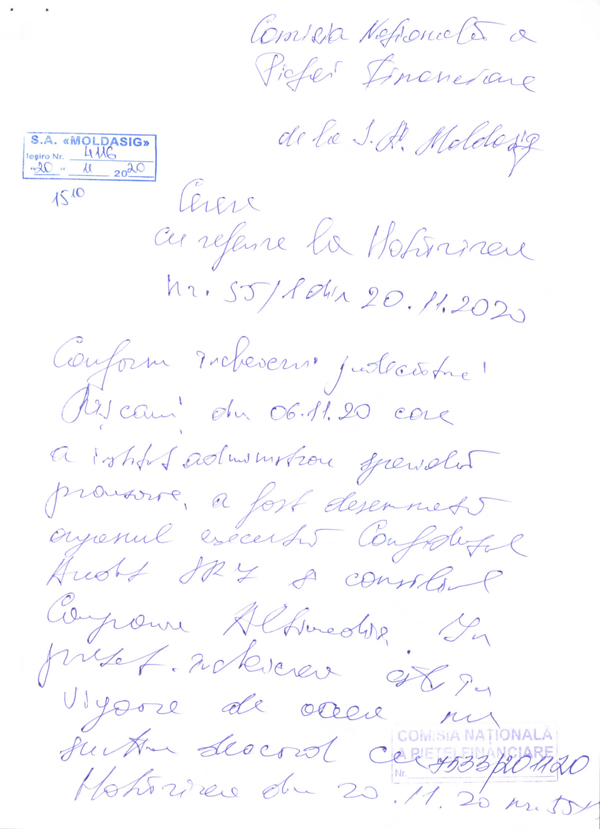 Comisia Națională a
Pieței Financiare
de la S.A. Moldasig
S.A. «MOLDASIG»
Ieșire Nr. 4116
"20" 11 2020
15 10
Cerere
cu referire la Hotărîrea
Nr. 55/1 din 20.11.2020
Conform încheierii judecătoriei
Rîșcani din 06.11.20 care
a instituit administrare specială
provizorie, a fost desemnată
organul executiv Confidențial
Audit SRL și consiliul
Companie Altimedia. În
prezent încheierea este în
vigoare de aceea nu
suntem deacord cu
COMISIA NAȚIONALĂ
A PIEȚEI FINANCIARE
Nr. 7533/201120
Hotărîrea din 20.11.20 nr. 55/1